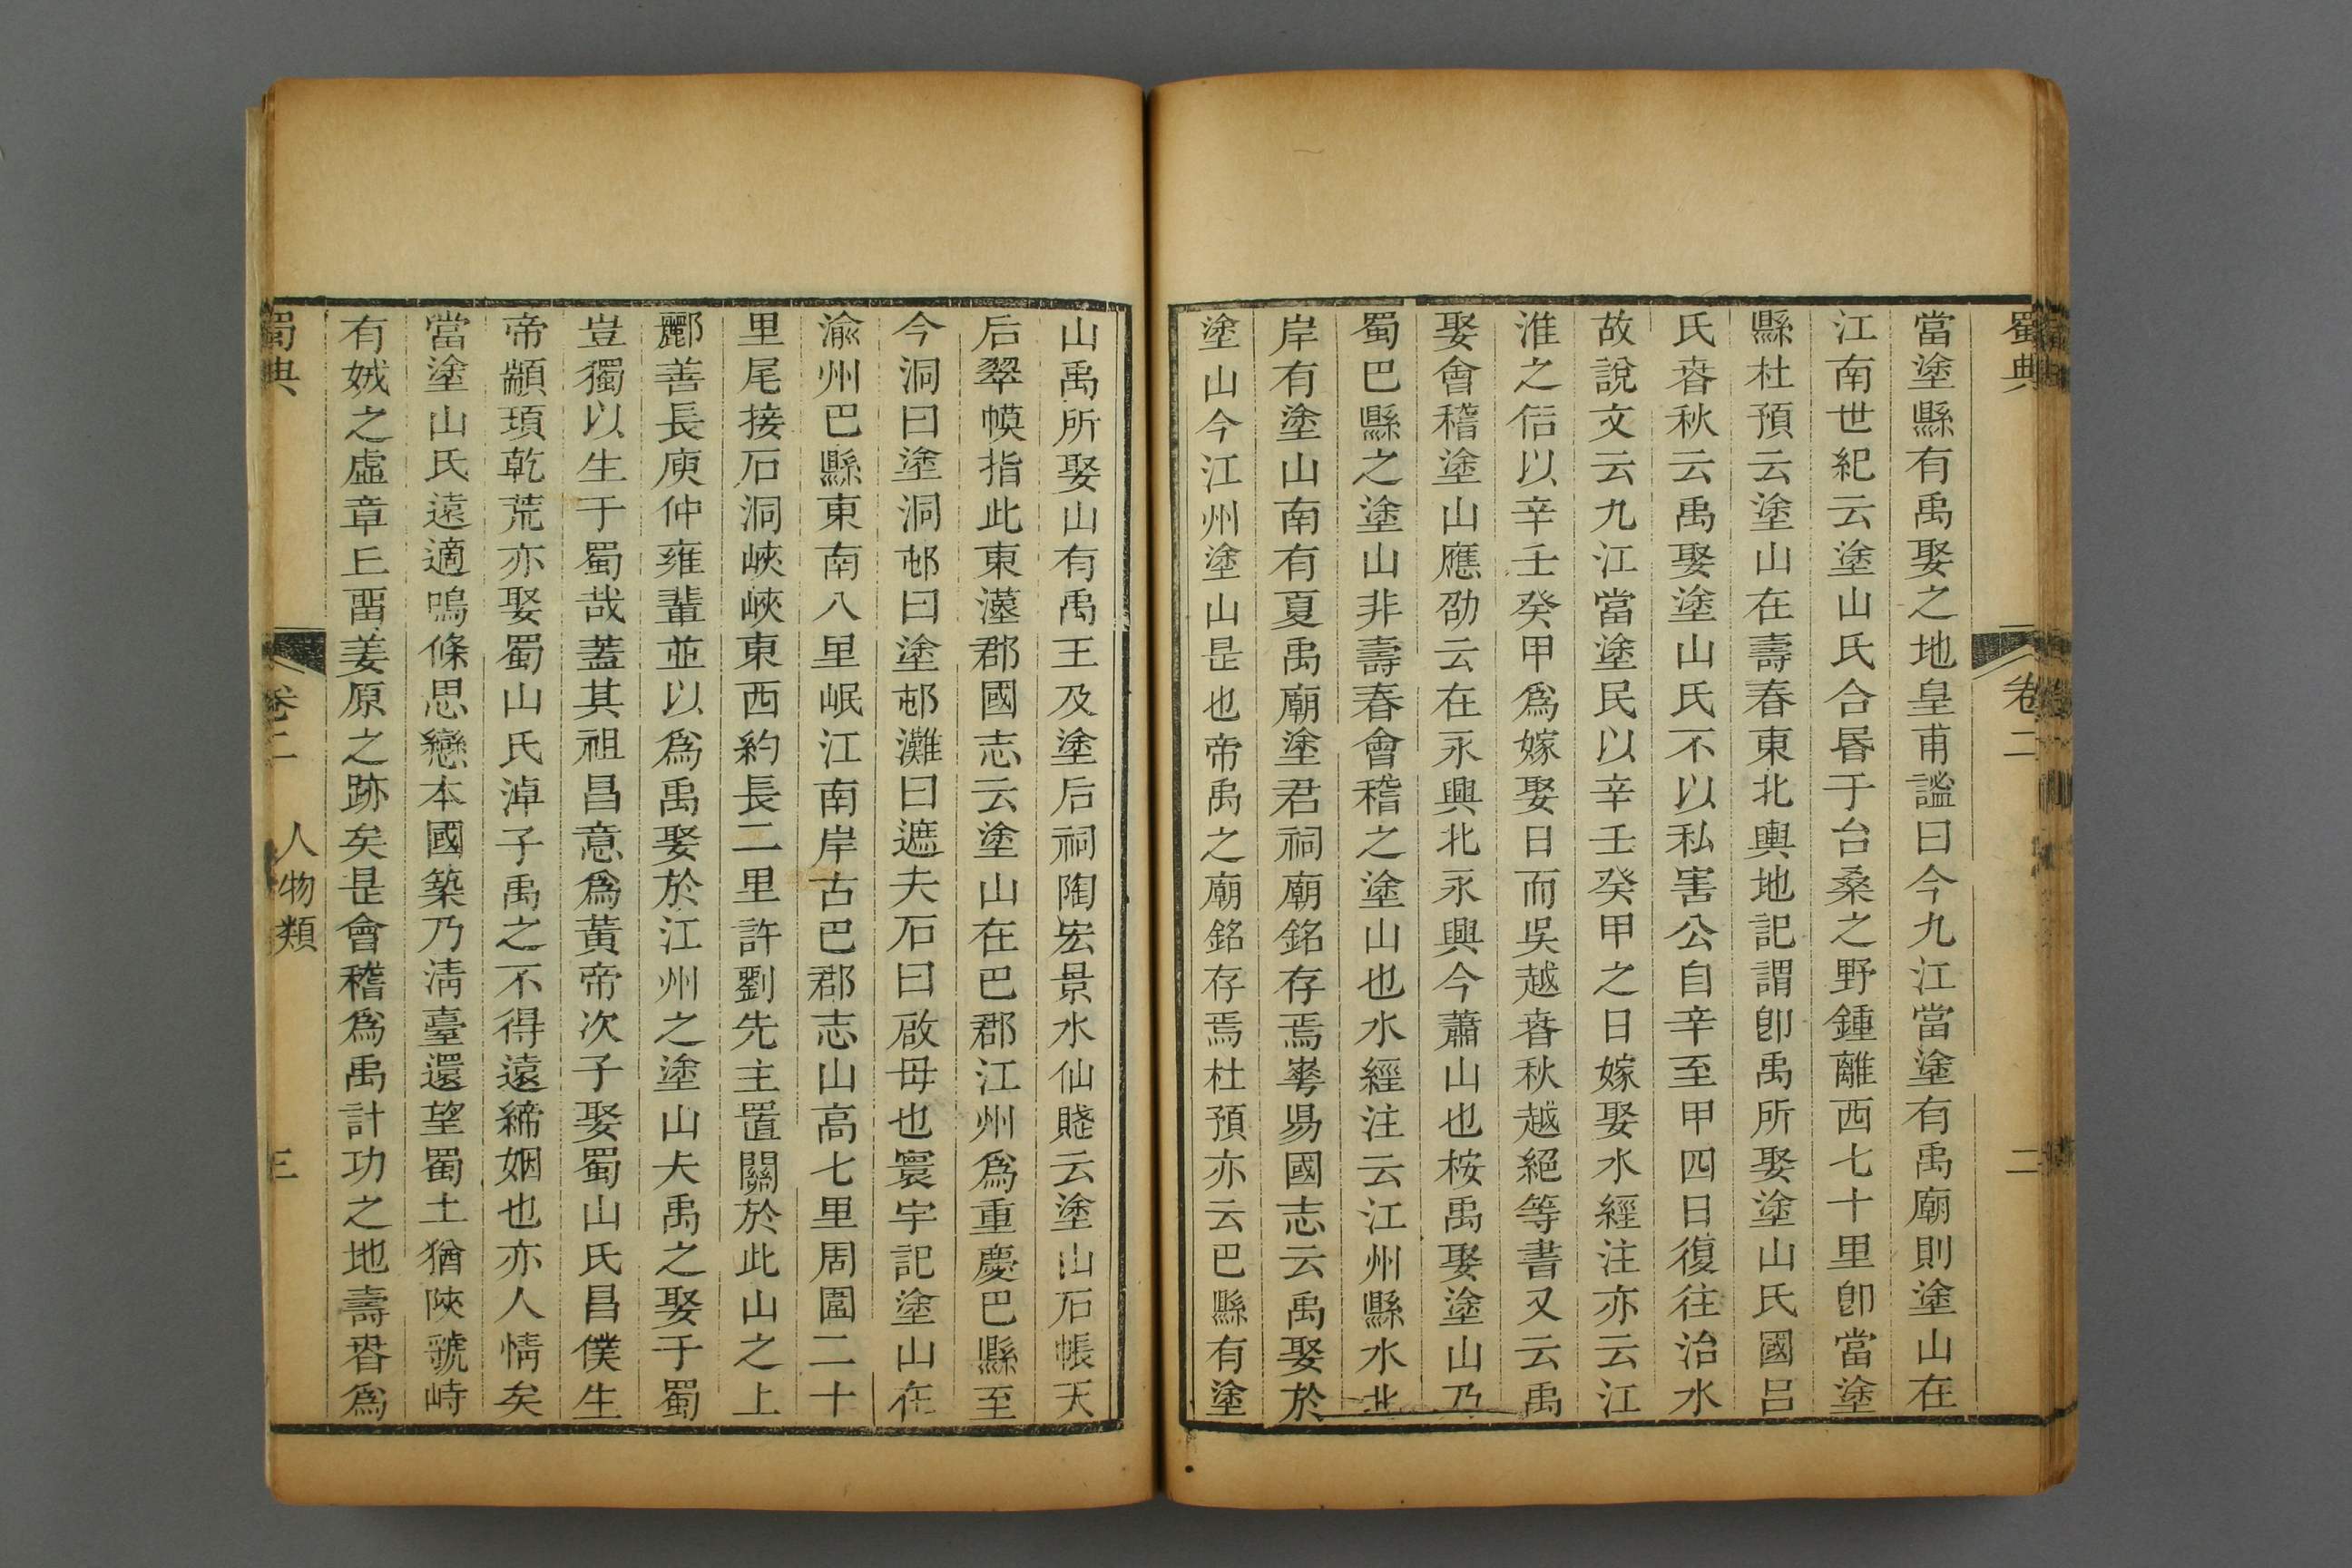 蜀典 卷二 二
當塗縣有禹娶之地皇甫謐曰今九江當塗有禹廟則塗山在
江南世紀云塗山氏合昏于台桑之野鍾離西七十里卽當塗
縣杜預云塗山在壽春東北輿地記謂卽禹所娶塗山氏國呂
氏春秋云禹娶塗山氏不以私害公自辛至甲四日復往治水
故說文云九江當塗民以辛壬癸甲之日嫁娶水經注亦云江
淮之俗以辛壬癸甲爲嫁娶日而吳越春秋越絕等書又云禹
娶會稽塗山應劭云在永興北永興今蕭山也桉禹娶塗山乃
蜀巴縣之塗山非壽春會稽之塗山也水經注云江州縣水北
岸有塗山南有夏禹廟塗君祠廟銘存焉華昜國志云禹娶於
塗山今江州塗山是也帝禹之廟銘存焉杜預亦云巴縣有塗
山禹所娶山有禹王及塗后祠陶宏景水仙賤云塗山石帳天
后翠幙指此東漢郡國志云塗山在巴郡江州爲重慶巴縣至
今洞曰塗洞邨曰塗邨灘曰遮夫石曰啟母也寰宇記塗山在
渝州巴縣東南八里岷江南岸古巴郡志山高七里周圍二十
里尾接石洞峽峽東西約長二里許劉先主置關於此山之上
酈善長庾仲雍輩並以爲禹娶於江州之塗山夫禹之娶于蜀
豈獨以生于蜀哉蓋其祖昌意爲黃帝次子娶蜀山氏昌僕生
帝顓頊乾荒亦娶蜀山氏淖子禹之不得遠締姻也亦人情矣
當塗山氏遠適鳴條思戀本國築乃淸臺還望蜀土猶陜虢峙
有娀之虛章丘畱姜原之跡矣是會稽爲禹計功之地壽春爲
蜀典 卷二 人物類 三